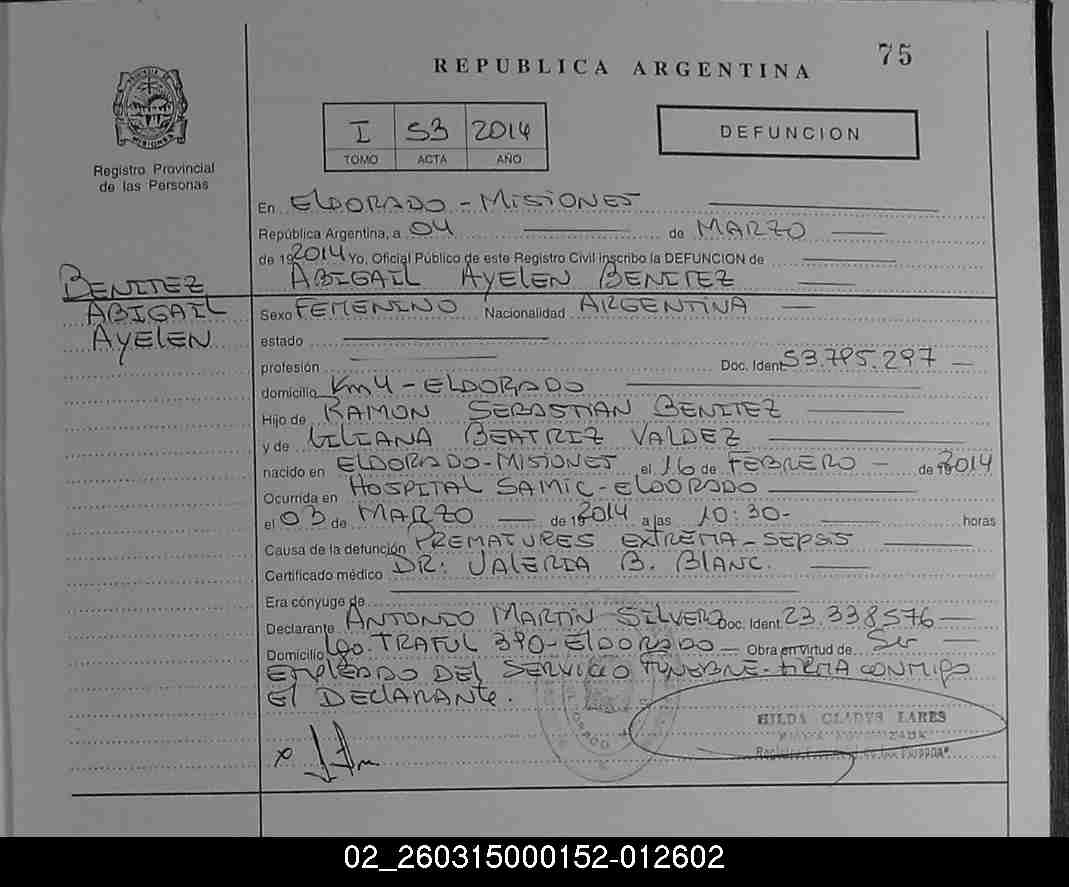 75
REPUBLICA ARGENTINA
I 53 2014
TOMO ACTA AÑO
DEFUNCION
PROVINCIA DE MISIONES
Registro Provincial
de las Personas
En ELDORADO - MISIONES
República Argentina, a 04 de MARZO
de 19 2014 Yo, Oficial Público de este Registro Civil inscribo la DEFUNCION de
ABIGAIL AYELEN BENITEZ
BENITEZ
ABIGAIL
AYELEN
Sexo FEMENINO Nacionalidad ARGENTINA
estado
profesión Doc. Ident. 53.795.297
domicilio Km 4 - ELDORADO
Hijo de RAMON SEBASTIAN BENITEZ
y de LILIANA BEATRIZ VALDEZ
nacido en ELDORADO - MISIONES el 16 de FEBRERO de 19 2014
Ocurrida en HOSPITAL SAMIC - ELDORADO
el 03 de MARZO de 19 2014 a las 10:30- horas
Causa de la defunción PREMATURES EXTREMA - SEPSIS
Certificado médico DR: VALERIA B. BLANC.
Era cónyuge de
Declarante ANTONIO MARTIN SILVERO Doc. Ident. 23.338.576
Domicilio Lgo. TRAFUL 390 - ELDORADO Obra en virtud de Ser
EMPLEADO DEL SERVICIO FUNEBRE - FIRMA CONMIGO
El DECLARANTE.
HILDA GLADYS LARES
Registro Provincial de las Personas
02_260315000152-012602